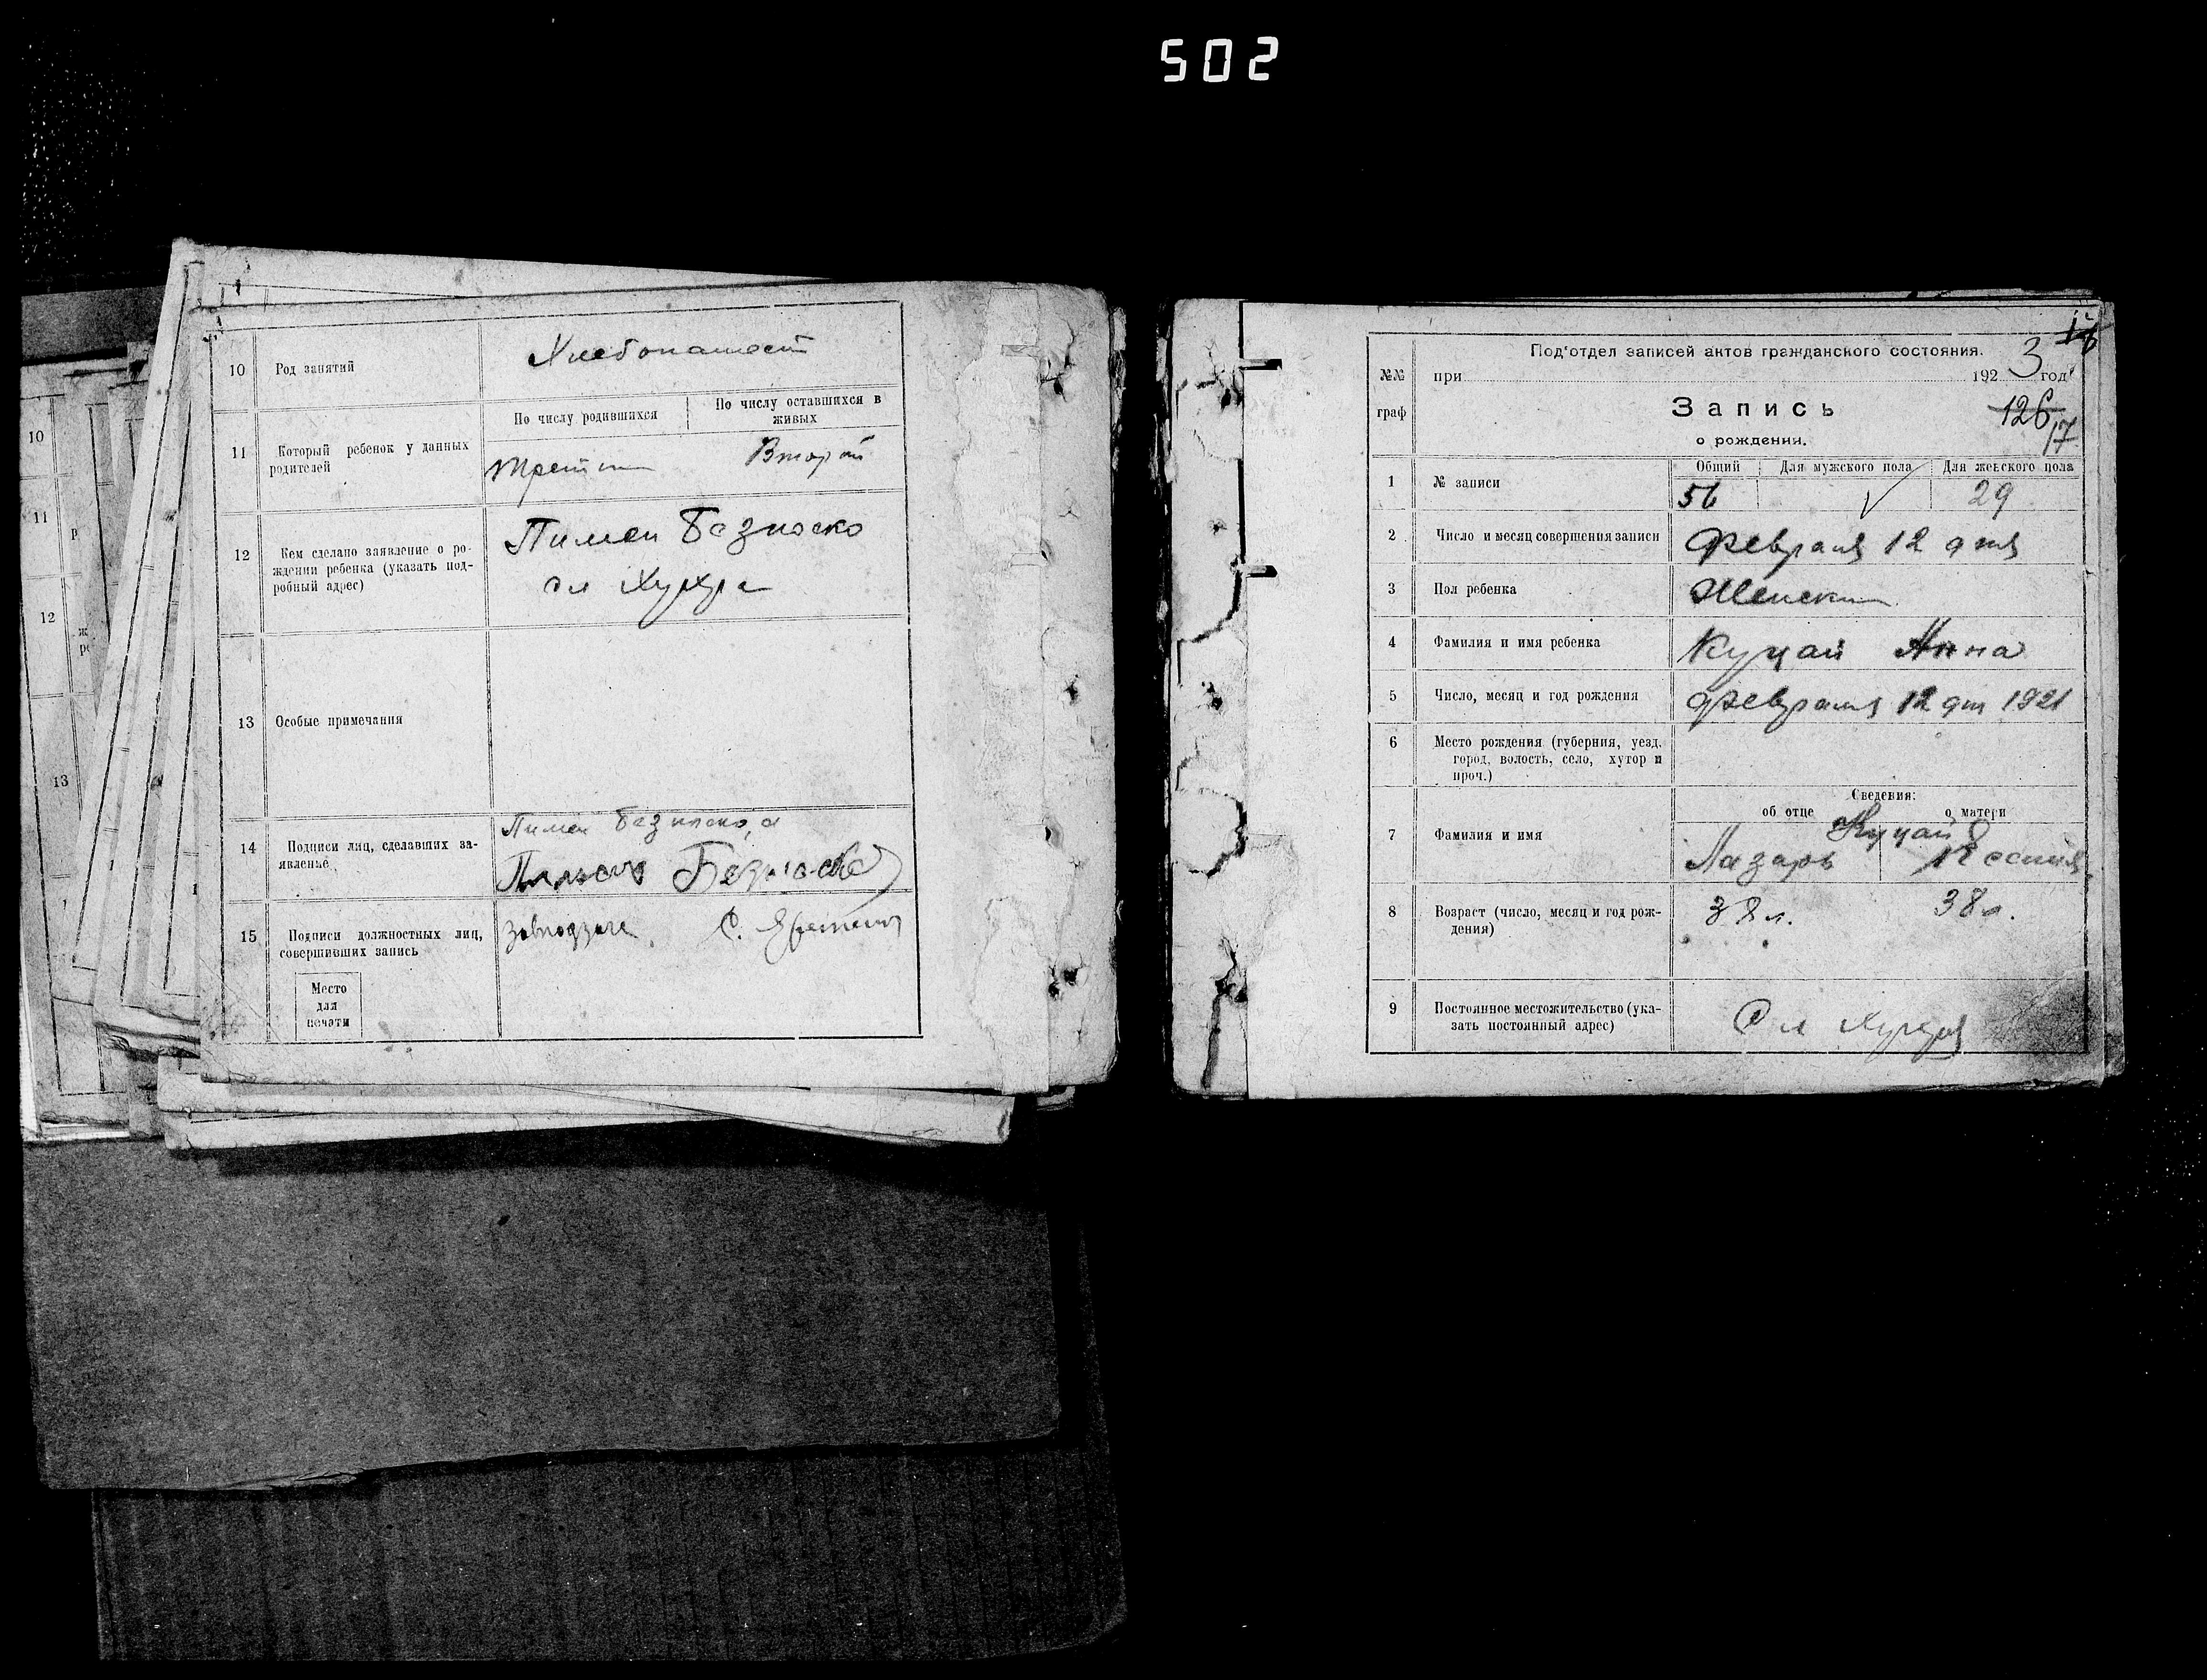 502
10 Род занятий Хлебопашест
По числу родившихся По числу оставшихся в живых
11 Который ребенок у данных родителей Второй
12 Кем сделано заявление о рождении ребенка (указать подробный адрес) Пимен Безноско
сл Хухра
13 Особые примечания
14 Подписи лиц, сделавших заявление Пимен Безноско, а
Пимен Безноско
15 Подписи должностных лиц, совершивших запись С.
Место
для
печати
10
11
12
13
Под'отдел записей актов гражданского состояния.
№№ граф
при 1923 год
Запись
126
17
о рождении.
Общий Для мужского пола Для женского пола
1 № записи 56 29
2 Число и месяц совершения записи Февраля 12 дня
3 Пол ребенка Женский
4 Фамилия и имя ребенка Куцай Анна
5 Число, месяц и год рождения Февраля 12 дня 1921
6 Место рождения (губерния, уезд, город, волость, село, хутор и проч.)
Сведения:
об отце о матери
Куцай
7 Фамилия и имя Лазарь
8 Возраст (число, месяц и год рождения) 38 л. 38 л.
9 Постоянное местожительство (указать постоянный адрес) Сл Хухря